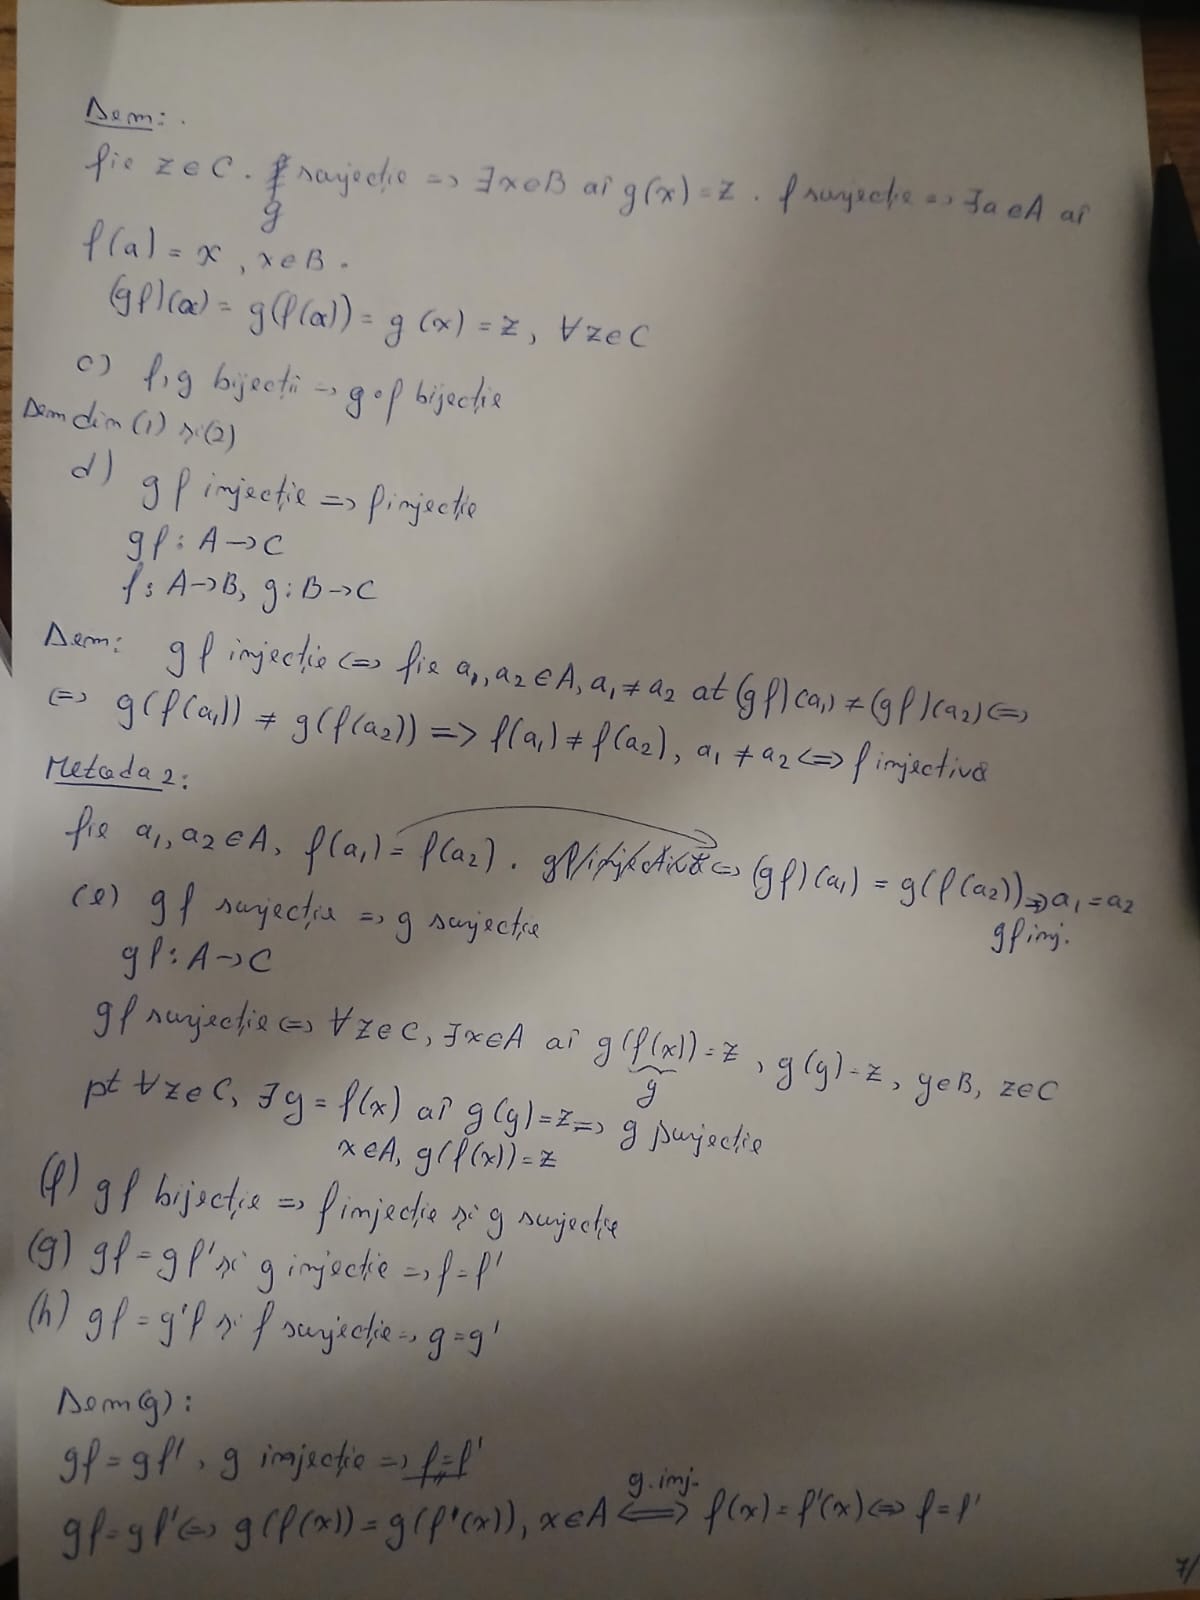 Dem: .
fie z∈C. g surjecție => ∃x∈B aî g(x)=z. f surjecție => ∃a∈A aî
f(a) = x, x∈B.
(gf)(a) = g(f(a)) = g(x) = z, ∀z∈C
c) f,g bijecții => g∘f bijecție
Dem din (1) și (2)
d) gf injecție => f injecție
gf: A→C
f: A→B, g: B→C
Dem: gf injecție <=> fie a₁,a₂∈A, a₁≠a₂ at (gf)(a₁)≠(gf)(a₂) <=>
<=> g(f(a₁)) ≠ g(f(a₂)) => f(a₁)≠f(a₂), a₁≠a₂ <=> f injectivă
Metoda 2:
fie a₁,a₂∈A, f(a₁)=f(a₂). gf injectivă <=> (gf)(a₁) = g(f(a₂)) => a₁=a₂
gf inj.
(e) gf surjecție => g surjecție
gf: A→C
gf surjecție <=> ∀z∈C, ∃x∈A aî g(f(x))=z, g(y)=z, y∈B, z∈C
y
pt ∀z∈C, ∃y=f(x) aî g(y)=z => g surjecție
x∈A, g(f(x))=z
(f) gf bijecție => f injecție și g surjecție
(g) gf=gf' și g injecție => f=f'
(h) gf=g'f și f surjecție => g=g'
Dem(g):
gf=gf', g injecție => f=f'
g.inj.
gf=gf' <=> g(f(x))=g(f'(x)), x∈A <=> f(x)=f'(x) <=> f=f'
7/